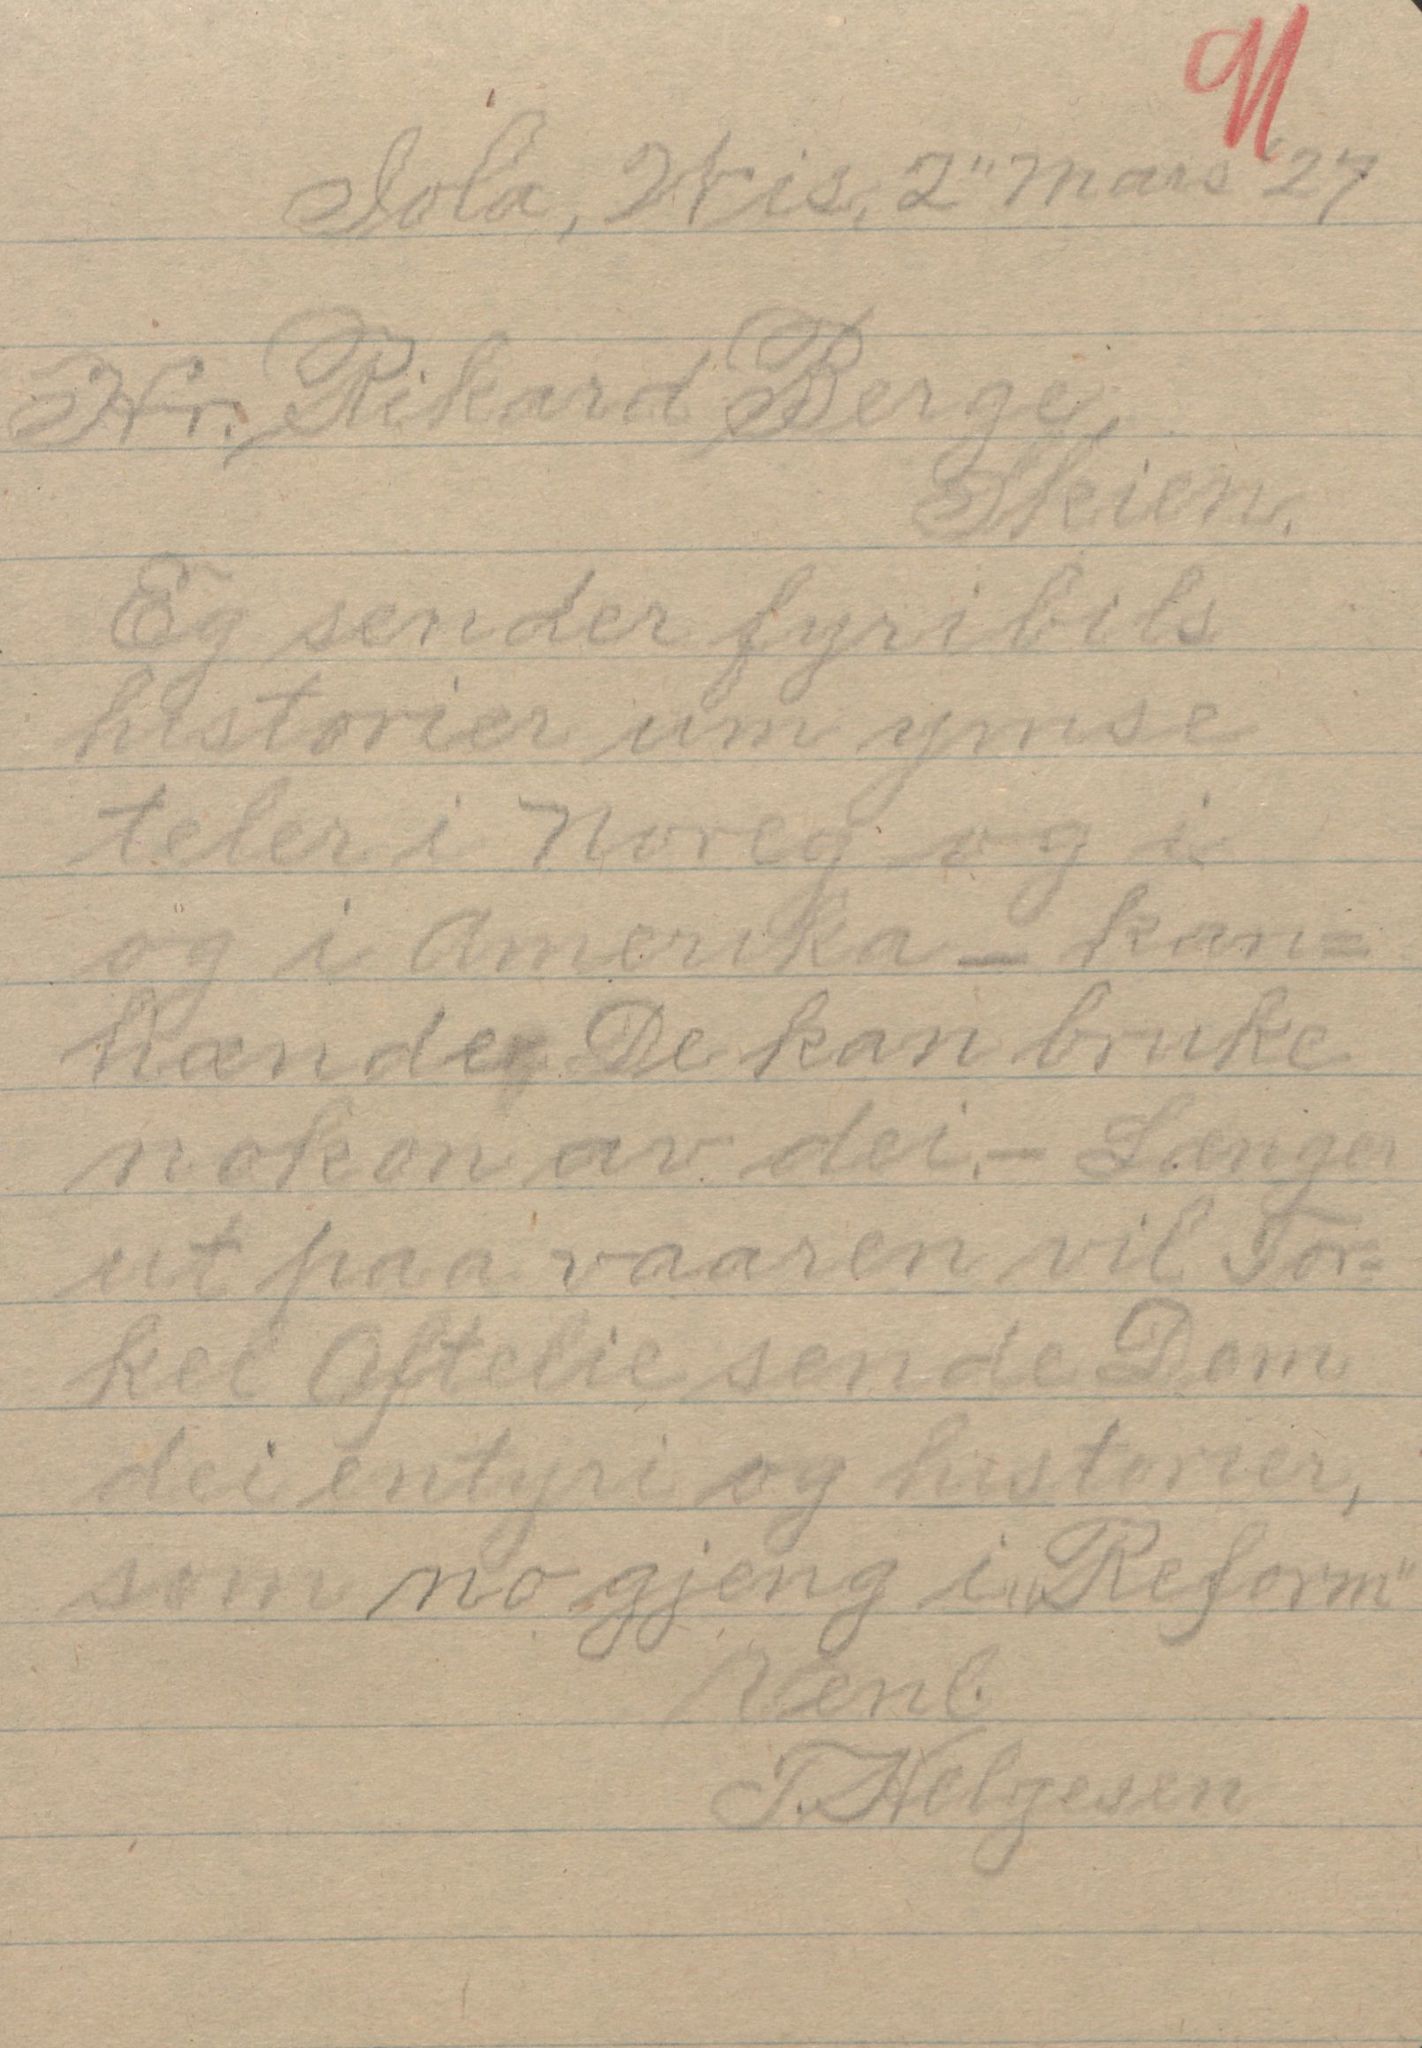 Iola, Wis, 2" Mars '27
Hr. Rikard Berge,
Skien.
Eg sender fyribils
historier um ymse
teler i Noreg og i
og i Amerika — kan=
hænde De kan bruke
nokon av dei. — Længer
ut paa vaaren vil Tor=
kel Oftelie sende Dem
dei entyri og historier,
som no gjeng i "Reform"
Venl.
T. Helgesen